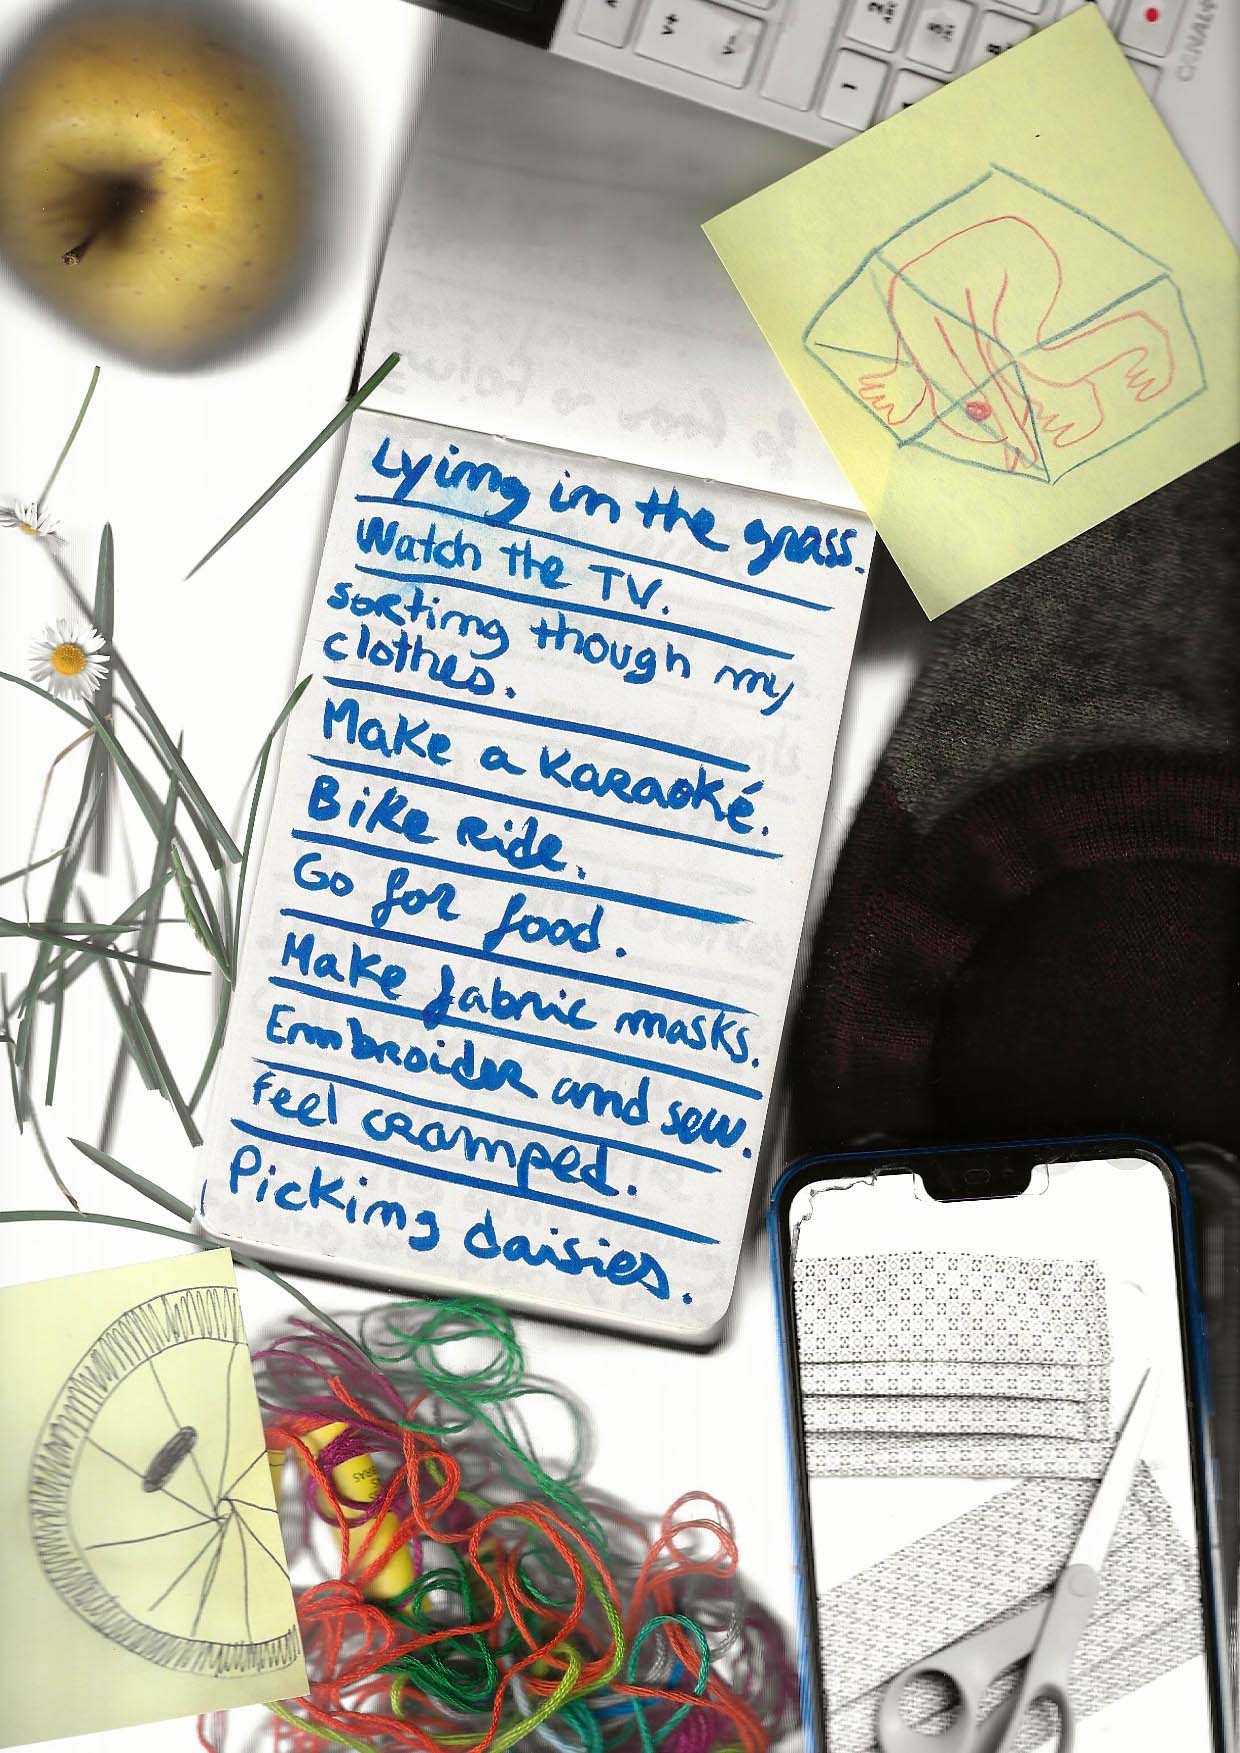 Lying in the grass.
Watch the TV.
sorting though my
clothes.
Make a Karaoké.
Bike ride.
Go for food.
Make fabric masks.
Embroider and sew.
Feel cramped.
Picking daisies.
V+
V-
2
ABC
5
8
1
CANAL+